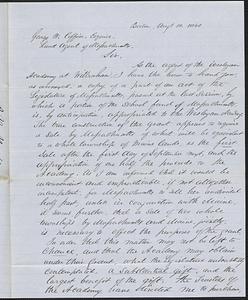 Boston, Augt 10. 1860
George W. Coffin, Esquire,
Land Agent of Massachusetts.
Sir,
As the agent of the Wesleyan
Academy at Wilbraham I have the honor to hand you
as annexed, a copy of a part of an act of the
Legislature of Massachusetts, passed at the last session,
by which a portion of the School fund of Massachusetts
is, by anticipation, appropriated to the Wesleyan Academy.
The true construction of the grant appears to require
a sale by Massachusetts of what will be equivalent
to a whole township of Maine Lands as the first
sale after the first day of September next, and the
appropriation of one half the proceeds to the
Academy. As I am informed that it would be
inconvenient and impracticable, if not altogether
for Massachusetts to sell her undivided
half part, unless in conjunction with Maine,
it seems further that a sale of two whole
townships by Massachusetts and Maine jointly
is necessary to effect the purposes of the grant.
In order that this matter may not be left to
chance, and that the Academy may obtain
under their Grant what the Legislature undoubtedly
contemplated, a substantial gift, and the
largest benefit of the gift, the Trustees of
the Academy have directed me to purchase